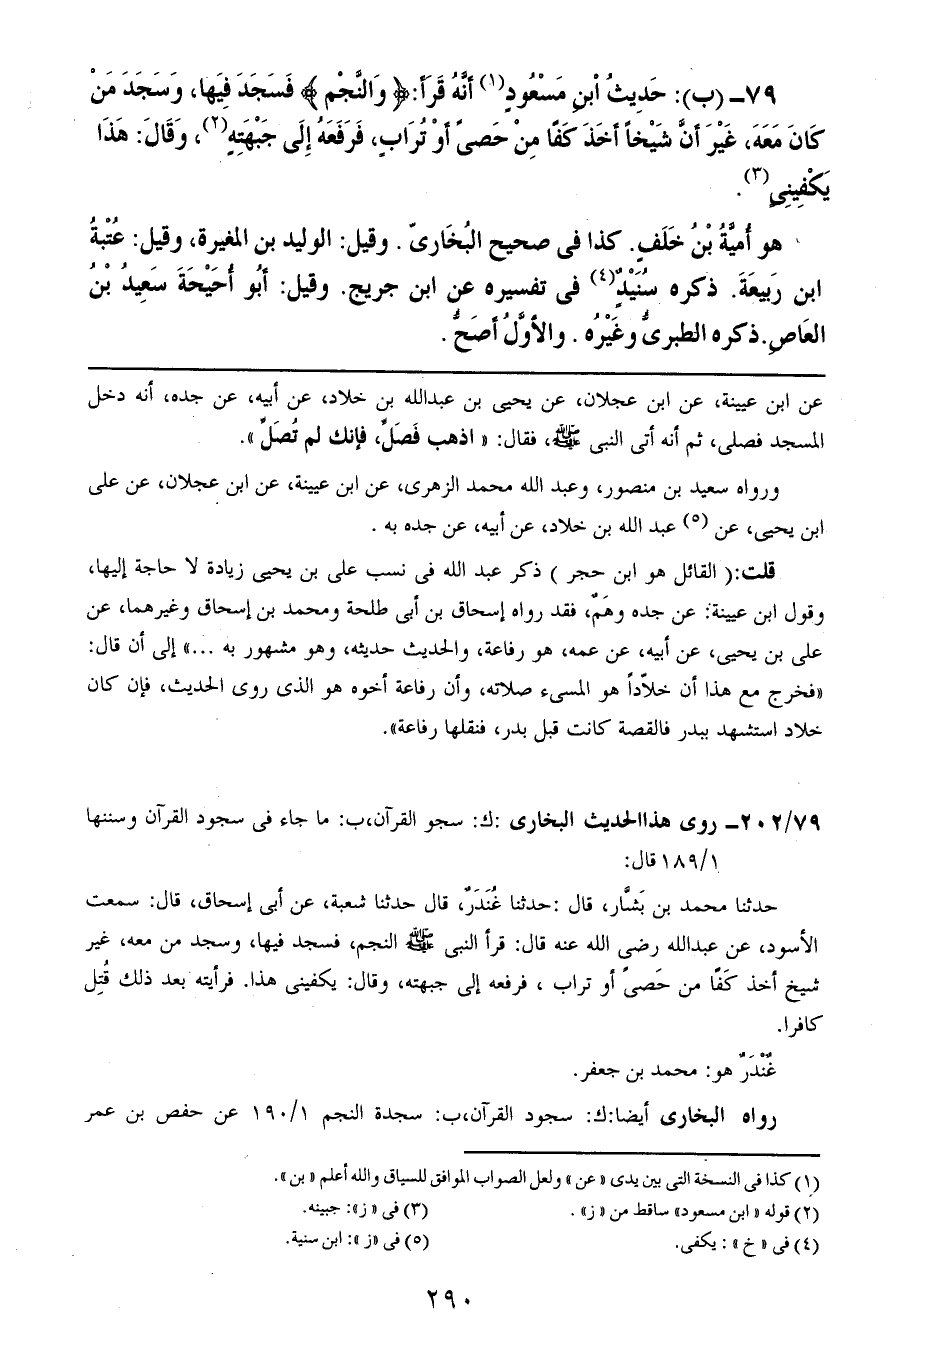 ٧٩ـ (ب): حَدِيثُ ابْنِ مَسْعُودٍ(١) أَنَّهُ قَرَأَ: ﴿ وَالنَّجْمِ ﴾ فَسَجَدَ فِيهَا، وَسَجَدَ مَنْ
كَانَ مَعَهُ، غَيْرَ أَنَّ شَيْخاً أَخَذَ كَفّاً مِنْ حَصىً أَوْ تُرَابٍ، فَرَفَعَهُ إِلَى جَبْهَتِهِ(٢)، وَقَالَ: هَذَا
يَكْفِينِي(٣).
هو أُمَيَّةُ بْنُ خَلَفٍ. كذا فى صحيح البُخَارىّ. وقيل: الوليد بن المغيرة، وقيل: عُتْبَةُ
ابن رَبِيعَةَ. ذكره سُنَيْدٌ(٤) فى تفسيره عن ابن جريج. وقيل: أَبُو أُحَيْحَةَ سَعِيدُ بْنُ
العَاصِ.ذكره الطبرىُّ وغَيْرُه . والأوَّلُ أصَحُّ .
عن ابن عيينة، عن ابن عجلان، عن يحيى بن عبدالله بن خلاد، عن أبيه، عن جده، أنه دخل
المسجد فصلى، ثم أنه أتى النبى ﷺ، فقال: « اذهب فَصَلِّ، فإنك لم تُصَلِّ ».
ورواه سعيد بن منصور، وعبد الله محمد الزهرى، عن ابن عيينة، عن ابن عجلان، عن على
ابن يحيى، عن (٥) عبد الله بن خلاد، عن أبيه، عن جده به .
قلت:( القائل هو ابن حجر ) ذكر عبد الله فى نسب على بن يحيى زيادة لا حاجة إليها،
وقول ابن عيينة: عن جده وهَمٌ، فقد رواه إسحاق بن أبى طلحة ومحمد بن إسحاق وغيرهما، عن
على بن يحيى، عن أبيه، عن عمه، هو رفاعة، والحديث حديثه، وهو مشهور به ...» إلى أن قال:
«فخرج مع هذا أن خلاّداً هو المسىء صلاته، وأن رفاعة أخوه هو الذى روى الحديث، فإن كان
خلاد استشهد ببدر فالقصة كانت قبل بدر، فنقلها رفاعة».
٢٠٢/٧٩ـ روى هذاالحديث البخارى :ك: سجو القرآن،ب: ما جاء فى سجود القرآن وسننها
١٨٩/١ قال:
حدثنا محمد بن بَشَّار، قال :حدثنا غُنْدَرٌ، قال حدثنا شعبة، عن أبى إسحاق، قال: سمعت
الأسود، عن عبدالله رضى الله عنه قال: قرأ النبى ﷺ النجم، فسجد فيها، وسجد من معه، غير
شيخ أخذ كَفّاً من حَصىً أو تراب ، فرفعه إلى جبهته، وقال: يكفينى هذا. فرأيته بعد ذلك قُتِل
كافرا.
غُنْدَرٌ هو: محمد بن جعفر.
رواه البخارى أيضا:ك: سجود القرآن،ب: سجدة النجم ١٩٠/١ عن حفص بن عمر
(١) كذا فى النسخة التى بين يدى « عن » ولعل الصواب الموافق للسياق والله أعلم « بن ».
(٢) قوله « ابن مسعود» ساقط من « ز» . (٣) فى « ز»: جبينه.
(٤) فى « خ » : يكفى. (٥) فى «ز »: ابن سنية.
٢٩٠